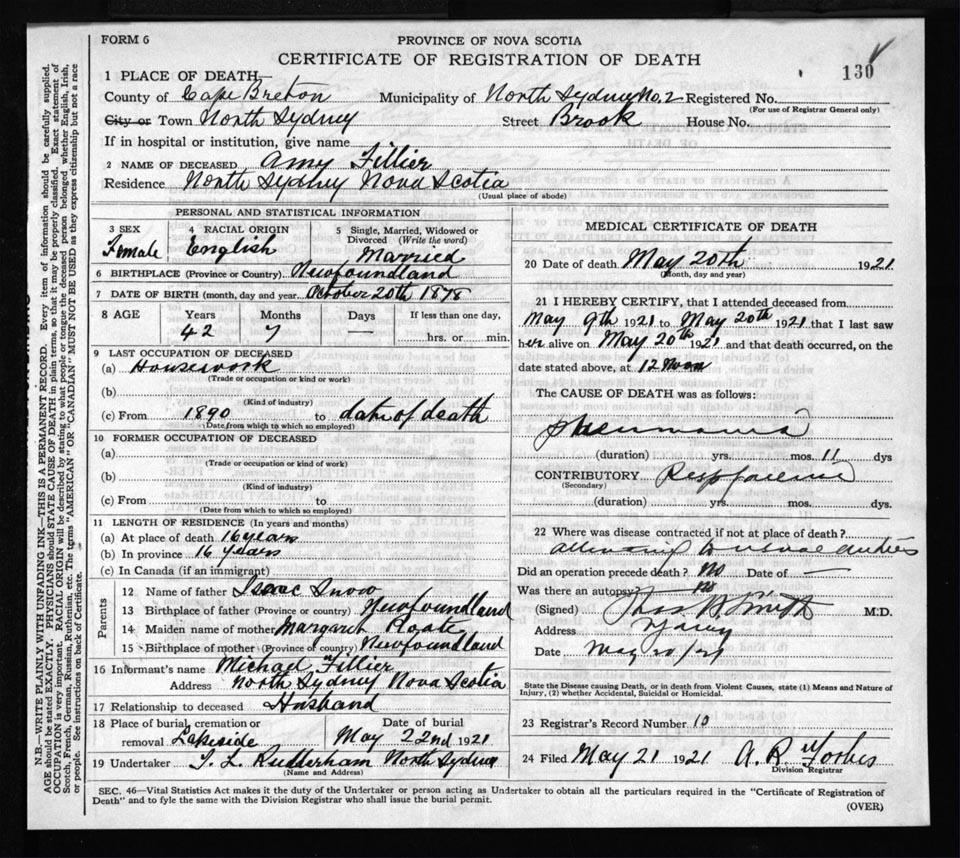 FORM 6
PROVINCE OF NOVA SCOTIA
CERTIFICATE OF REGISTRATION OF DEATH
130
1 PLACE OF DEATH—
County of Cape Breton Municipality of North Sydney No. 2 Registered No.
(For use of Registrar General only)
City or Town North Sydney Street Brook House No.
If in hospital or institution, give name
2 NAME OF DECEASED Amy Fillier
Residence North Sydney Nova Scotia
(Usual place of abode)
PERSONAL AND STATISTICAL INFORMATION
3 SEX Female
4 RACIAL ORIGIN English
5 Single, Married, Widowed or Divorced (Write the word) Married
6 BIRTHPLACE (Province or Country) Newfoundland
7 DATE OF BIRTH (month, day and year) October 20th 1878
8 AGE Years Months Days If less than one day,
42 7 — hrs. or min.
9 LAST OCCUPATION OF DECEASED
(a) Housework
(Trade or occupation or kind of work)
(b)
(Kind of industry)
(c) From 1890 to date of death
(Date from which to which so employed)
10 FORMER OCCUPATION OF DECEASED
(a)
(Trade or occupation or kind of work)
(b)
(Kind of industry)
(c) From to
(Date from which to which so employed)
11 LENGTH OF RESIDENCE (In years and months)
(a) At place of death 16 years
(b) In province 16 years
(c) In Canada (if an immigrant)
Parents
12 Name of father Isaac Snow
13 Birthplace of father (Province or country) Newfoundland
14 Maiden name of mother Margaret
15 Birthplace of mother (Province or country) Newfoundland
16 Informant's name Michael Fillier
Address North Sydney Nova Scotia
17 Relationship to deceased Husband
18 Place of burial, cremation or removal Lakeside
Date of burial May 22nd 1921
19 Undertaker T. L. Rudderham North Sydney
(Name and Address)
MEDICAL CERTIFICATE OF DEATH
20 Date of death May 20th 1921
(Month, day and year)
21 I HEREBY CERTIFY, that I attended deceased from
May 9th 1921 to May 20th 1921 that I last saw
her alive on May 20th 1921 and that death occurred, on the
date stated above, at 12 Noon
The CAUSE OF DEATH was as follows:
Pneumonia
(duration) yrs. mos. 11 dys
CONTRIBUTORY
(Secondary)
(duration) yrs. mos. dys.
22 Where was disease contracted if not at place of death?
Did an operation precede death? No Date of —
Was there an autopsy No
(Signed) M.D.
Address
Date May 20/21
State the Disease causing Death, or in death from Violent Causes, state (1) Means and Nature of
Injury, (2) whether Accidental, Suicidal or Homicidal.
23 Registrar's Record Number 10
24 Filed May 21 1921 A. R. Forbes
Division Registrar
SEC. 46—Vital Statistics Act makes it the duty of the Undertaker or person acting as Undertaker to obtain all the particulars required in the "Certificate of Registration of
Death" and to fyle the same with the Division Registrar who shall issue the burial permit.
(OVER)
N.B.—WRITE PLAINLY WITH UNFADING INK—THIS IS A PERMANENT RECORD. Every item of information should be carefully supplied.
AGE should be stated EXACTLY. PHYSICIANS should STATE CAUSE OF DEATH in plain terms, so that it may be properly classified. Exact statement of
OCCUPATION is very important. RACIAL ORIGIN will be described by stating to what people or tongue the deceased person belonged whether English, Irish,
Scotch, French, German, Russian, Ruthenian, etc. The terms "AMERICAN" OR "CANADIAN" MUST NOT BE USED as they express citizenship but not a race
or people. See instructions on back of Certificate.